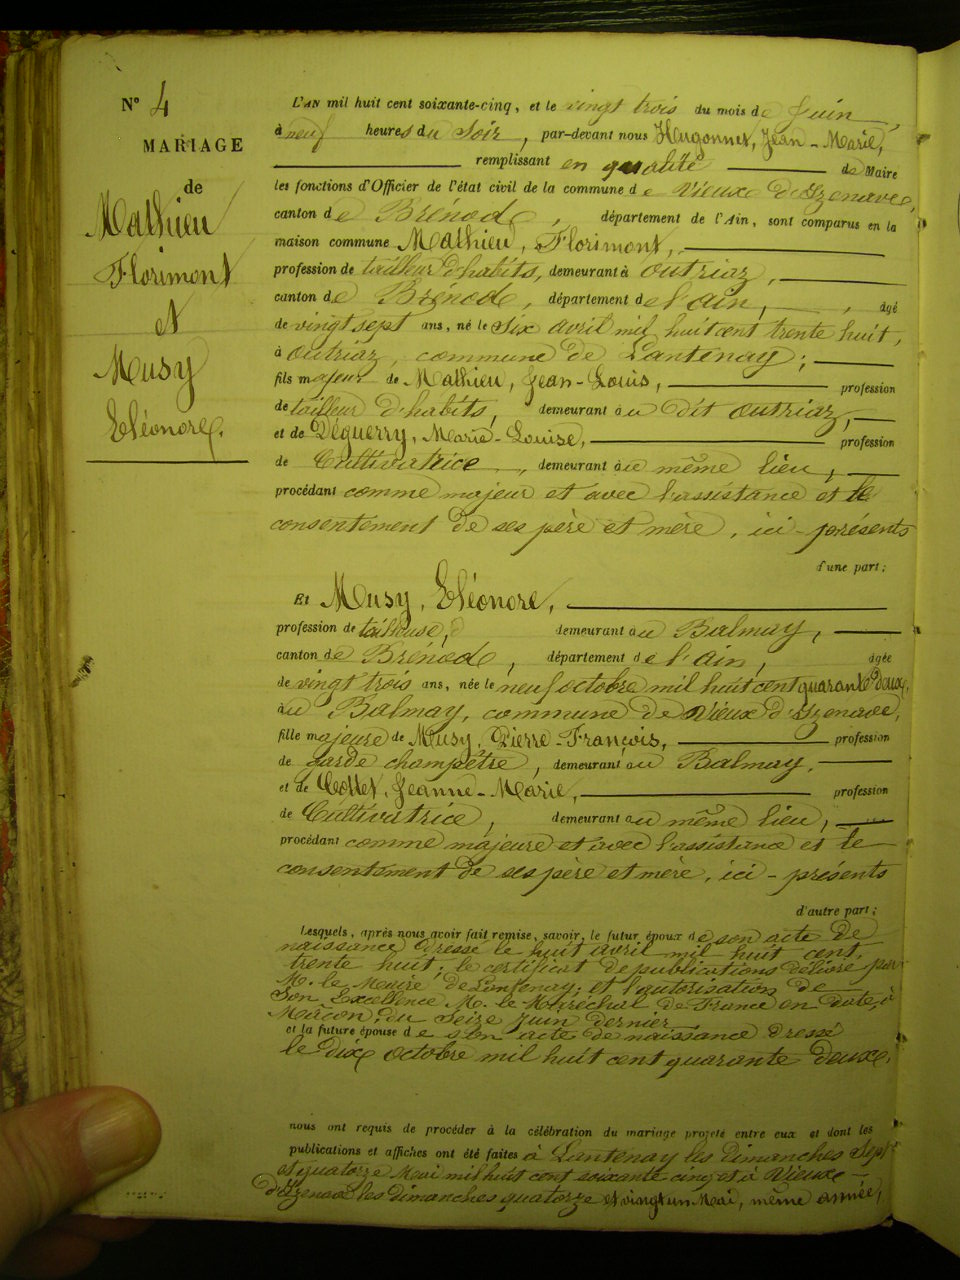 N° 4
MARIAGE
de
Mathieu
Florimont
et
Musy
Eléonore.
L'AN mil huit cent soixante-cinq, et le vingt trois du mois de Juin,
à neuf heures du Soir, par-devant nous Hugonnet, Jean-Marie,
remplissant en qualité de Maire
les fonctions d'Officier de l'état civil de la commune de Vieux d'Izenave,
canton de Brénod, département de l'Ain, sont comparus en la
maison commune Mathieu, Florimont,
profession de tailleur d'habits, demeurant à Outriaz,
canton de Brénod, département de l'ain, âgé
de vingt sept ans, né le Six avril mil huit cent trente huit,
à Outriaz, commune de Lantenay;
fils majeur de Mathieu, Jean-Louis, profession
de tailleur d'habits, demeurant au dit Outriaz,
et de Déguerry, Marie-Louise, profession
de Cultivatrice, demeurant au même lieu,
procédant comme majeur et avec l'assistance et le
consentement de ses père et mère, ici-présents
d'une part;
Et Musy, Eléonore,
profession de tailleuse, demeurant au Balmay,
canton de Brénod, département de l'ain, âgée
de vingt trois ans, née le neuf octobre mil huit cent quarante deux,
au Balmay, commune de Vieux d'Izenave,
fille majeure de Musy, Pierre-François, profession
de garde champêtre, demeurant au Balmay,
et de Cottet, Jeanne-Marie, profession
de Cultivatrice, demeurant au même lieu,
procédant comme majeure et avec l'assistance et le
consentement de ses père et mère, ici-présents
d'autre part;
Lesquels, après nous avoir fait remise, savoir, le futur époux de son acte de
naissance dressé le huit avril mil huit cent
trente huit; le certificat de publications délivré par
M. le Maire de Lantenay; et l'autorisation de
Son Excellence M. le Maréchal de France en date, à
du Seize Juin dernier
et la future épouse de son acte de naissance dressé
le dix octobre mil huit cent quarante deux,
nous ont requis de procéder à la célébration du mariage projeté entre eux et dont les
publications et affiches ont été faites à Lantenay les dimanches sept
et quatorze Mai mil huit cent soixante cinq et à Vieux
d'Izenave les dimanches quatorze et vingt un Mai, même année,